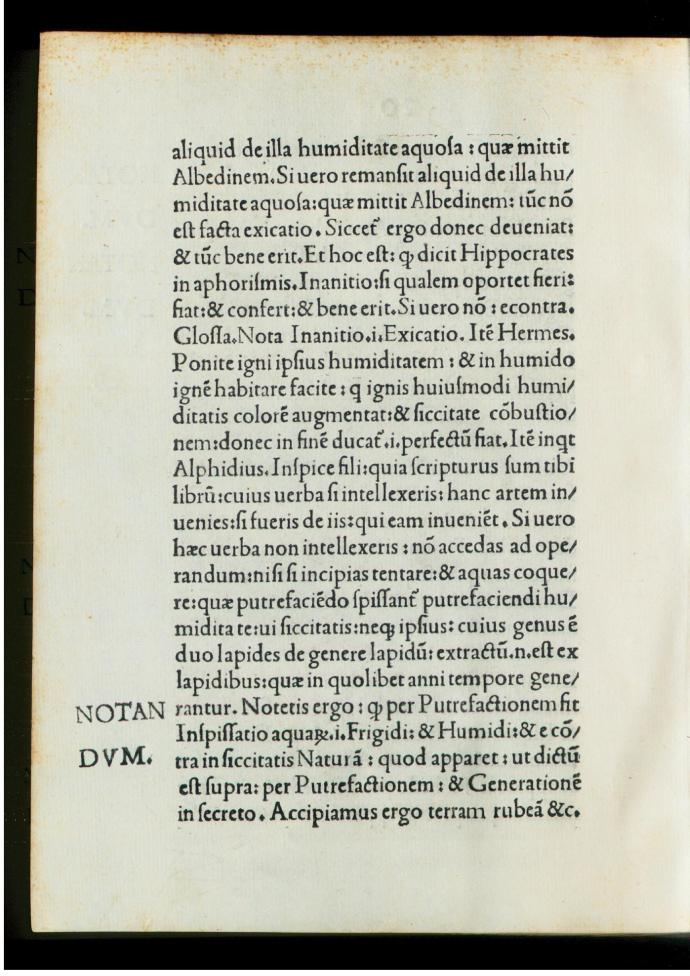 aliquid de illa humiditate aquoſa : quæ mittit
Albedinem. Si uero remanſit aliquid de illa hu/
miditate aquoſa: quæ mittit Albedinem: tūc nō
eſt facta exicatio. Siccet᷑ ergo donec deueniat:
& tūc bene erit. Et hoc eſt: ꝙ dicit Hippocrates
in aphoriſmis. Inanitio: ſi qualem oportet fieri:
fiat: & confert: & bene erit. Si uero nō : econtra.
Gloſſa. Nota Inanitio .i. Exicatio. Itē Hermes.
Ponite igni ipſius humiditatem : & in humido
ignē habitare facite : q ignis huiuſmodi humi/
ditatis colorē augmentat: & ſiccitate cōbuſtio/
nem: donec in finē ducat᷑ .i. perfectū fiat. Itē inqt
Alphidius. Inſpice fili: quia ſcripturus ſum tibi
librū: cuius uerba ſi intellexeris: hanc artem in/
uenies: ſi fueris de iis: qui eam inueniēt. Si uero
hæc uerba non intellexeris : nō accedas ad ope/
randum: niſi ſi incipias tentare: & aquas coque/
re: quæ putrefaciēdo ſpiſſant᷑ putrefaciendi hu/
midita te: ui ſiccitatis: neqꝫ ipſius: cuius genus ē
duo lapides de genere lapidū: extractū .n. eſt ex
lapidibus: quæ in quolibet anni tempore gene/
NOTAN rantur. Notetis ergo : ꝙ per Putrefactionem fit
Inſpiſſatio aquaꝝ .i. Frigidi: & Humidi: & e cō/
DVM. tra in ſiccitatis Naturā : quod apparet: ut dictū
eſt ſupra: per Putrefactionem : & Generationē
in ſecreto. Accipiamus ergo terram rubeā &c.